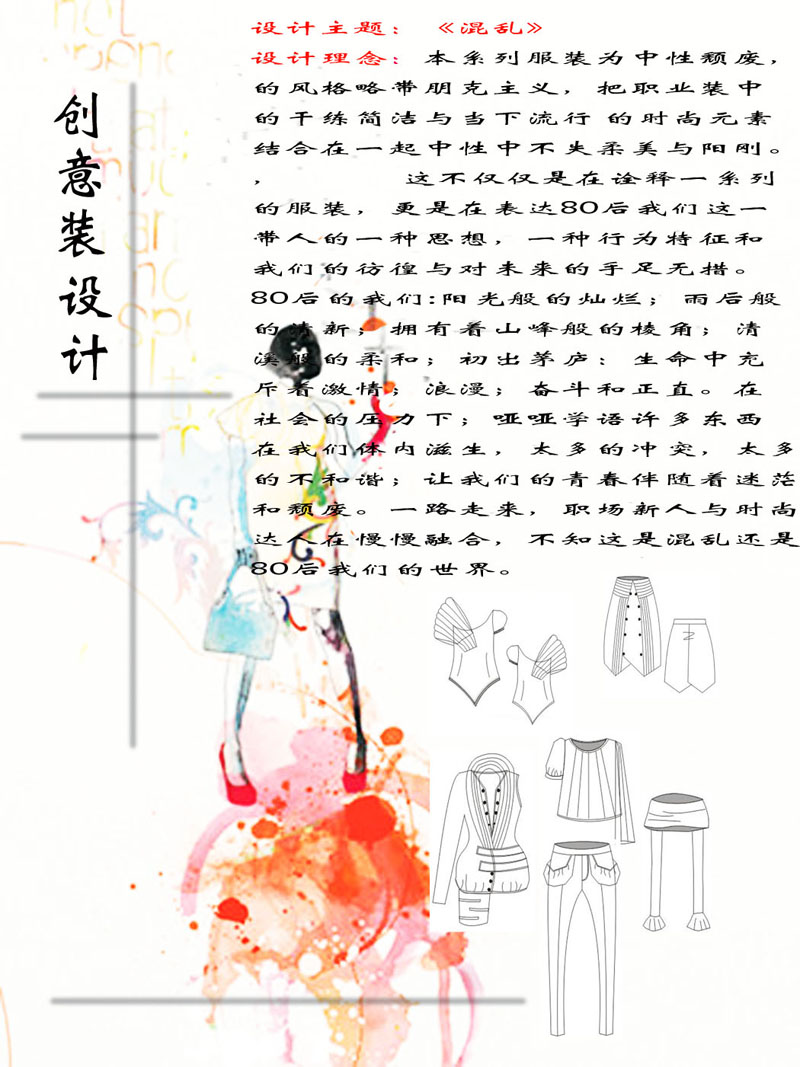 创意装设计
设计主题：《混乱》
设计理念：本系列服装为中性颓废，
的风格略带朋克主义，把职业装中
的干练简洁与当下流行 的时尚元素
结合在一起中性中不失柔美与阳刚。
， 这不仅仅是在诠释一系列
的服装，更是在表达80后我们这一
带人的一种思想，一种行为特征和
我们的彷徨与对未来的手足无措。
80后的我们:阳光般的灿烂；雨后般
的清新；拥有着山峰般的棱角；清
溪般的柔和；初出茅庐：生命中充
斥着激情；浪漫；奋斗和正直。在
社会的压力下；哑哑学语许多东西
在我们体内滋生，太多的冲突，太多
的不和谐；让我们的青春伴随着迷茫
和颓废。一路走来，职场新人与时尚
达人在慢慢融合，不知这是混乱还是
80后我们的世界。